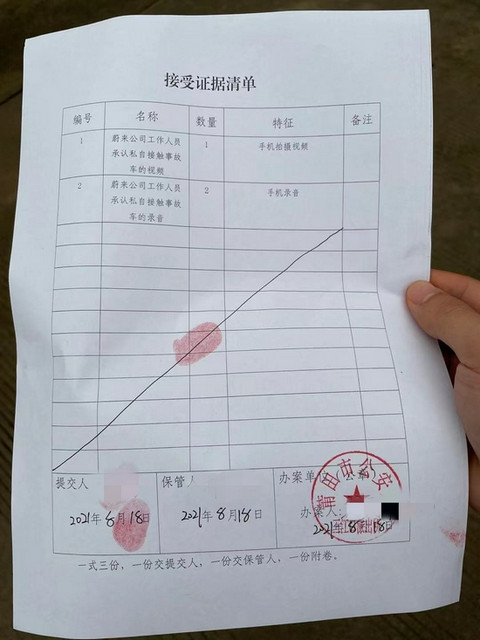 接受证据清单
编号 名称 数量 特征 备注
1 蔚来公司工作人员承认私自接触事故车的视频 1 手机拍摄视频
2 蔚来公司工作人员承认私自接触事故车的录音 2 手机录音
提交人 保管人 办案单
莆田市公安
办案人:
2021年8月18日 2021年8月18日 2021年8月18日
一式三份，一份交提交人，一份交保管人，一份附卷。